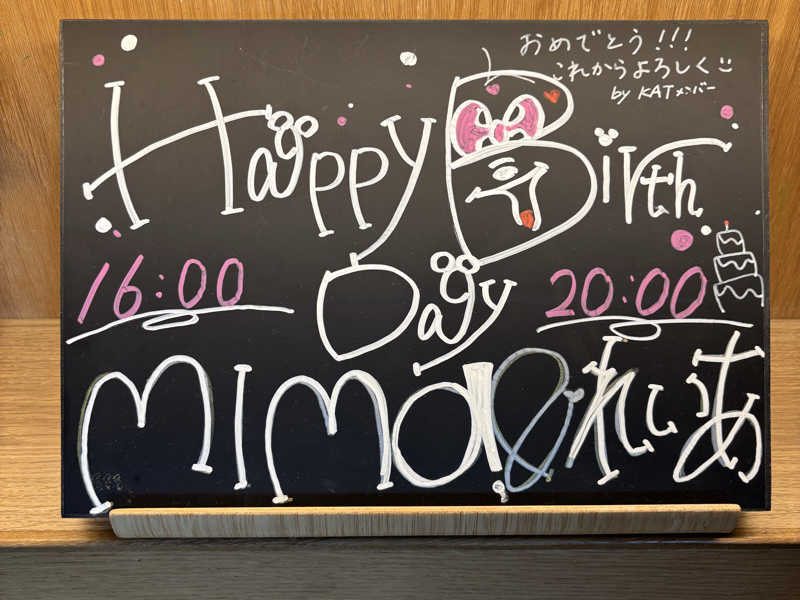 おめでとう!!!
これからよろしく
by KATメンバー
Happy Birth
16:00 Day 20:00
mima@れいあ